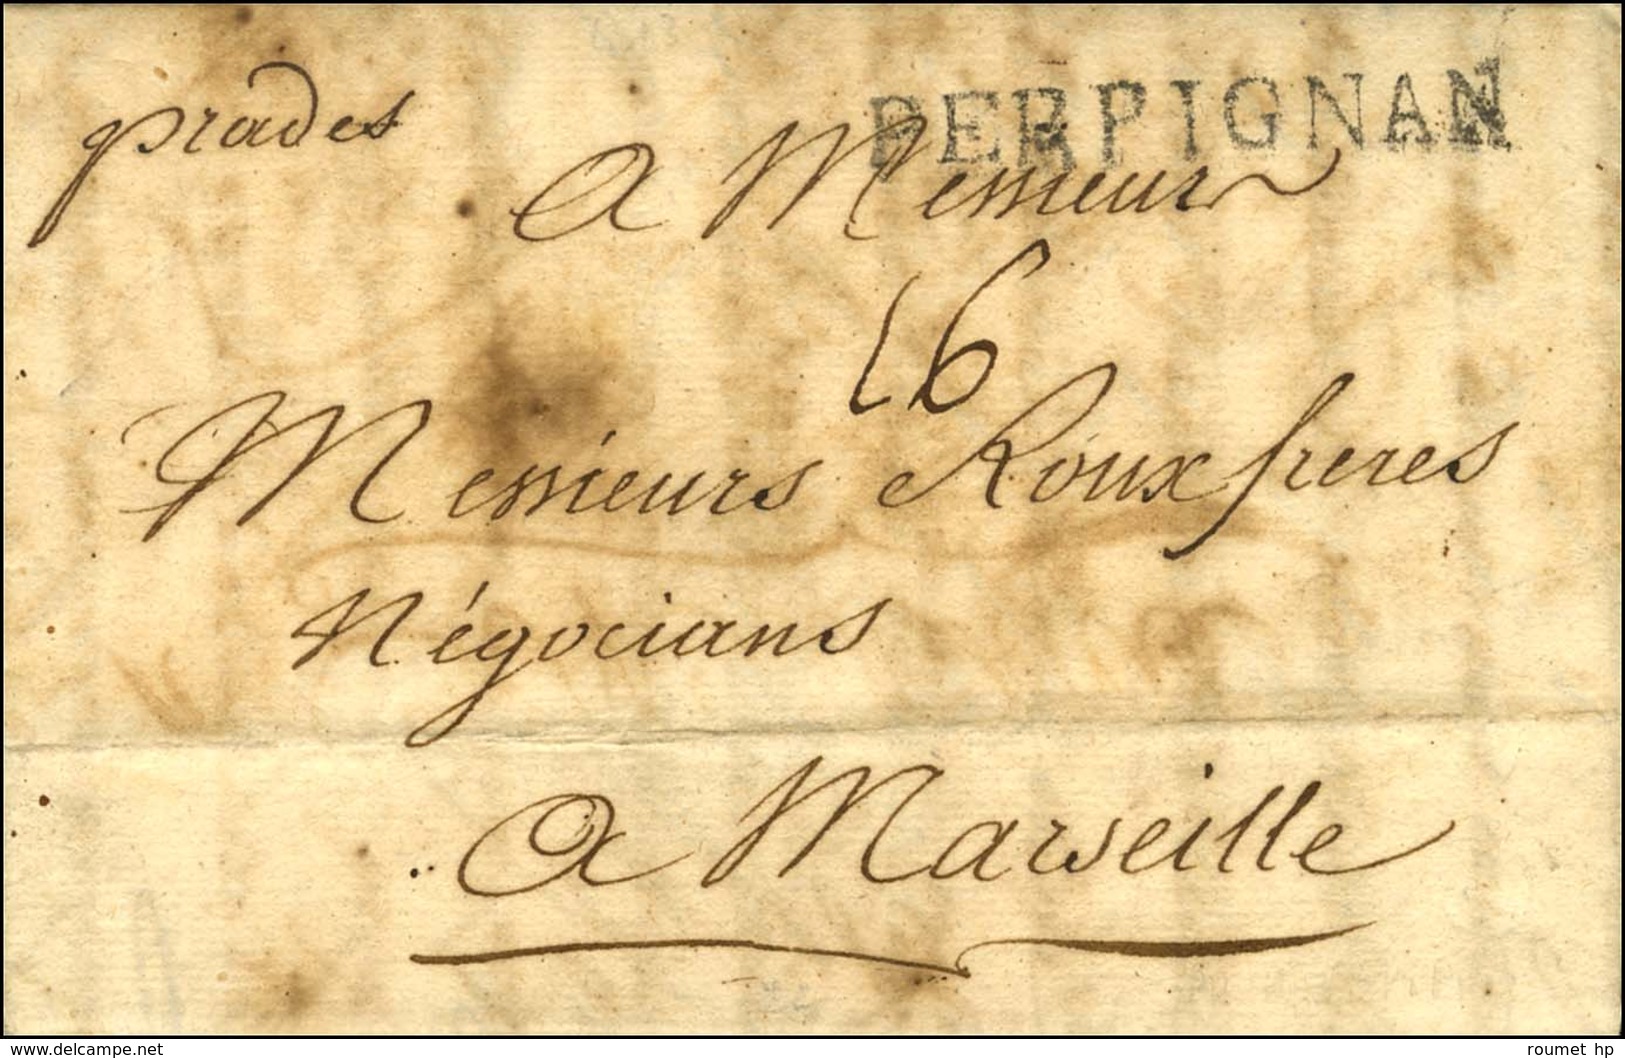 prades
PERPIGNAN
A Messieur
16
Messieurs Roux freres
Négocians
A Marseille
www.delcampe.net
roumet hp